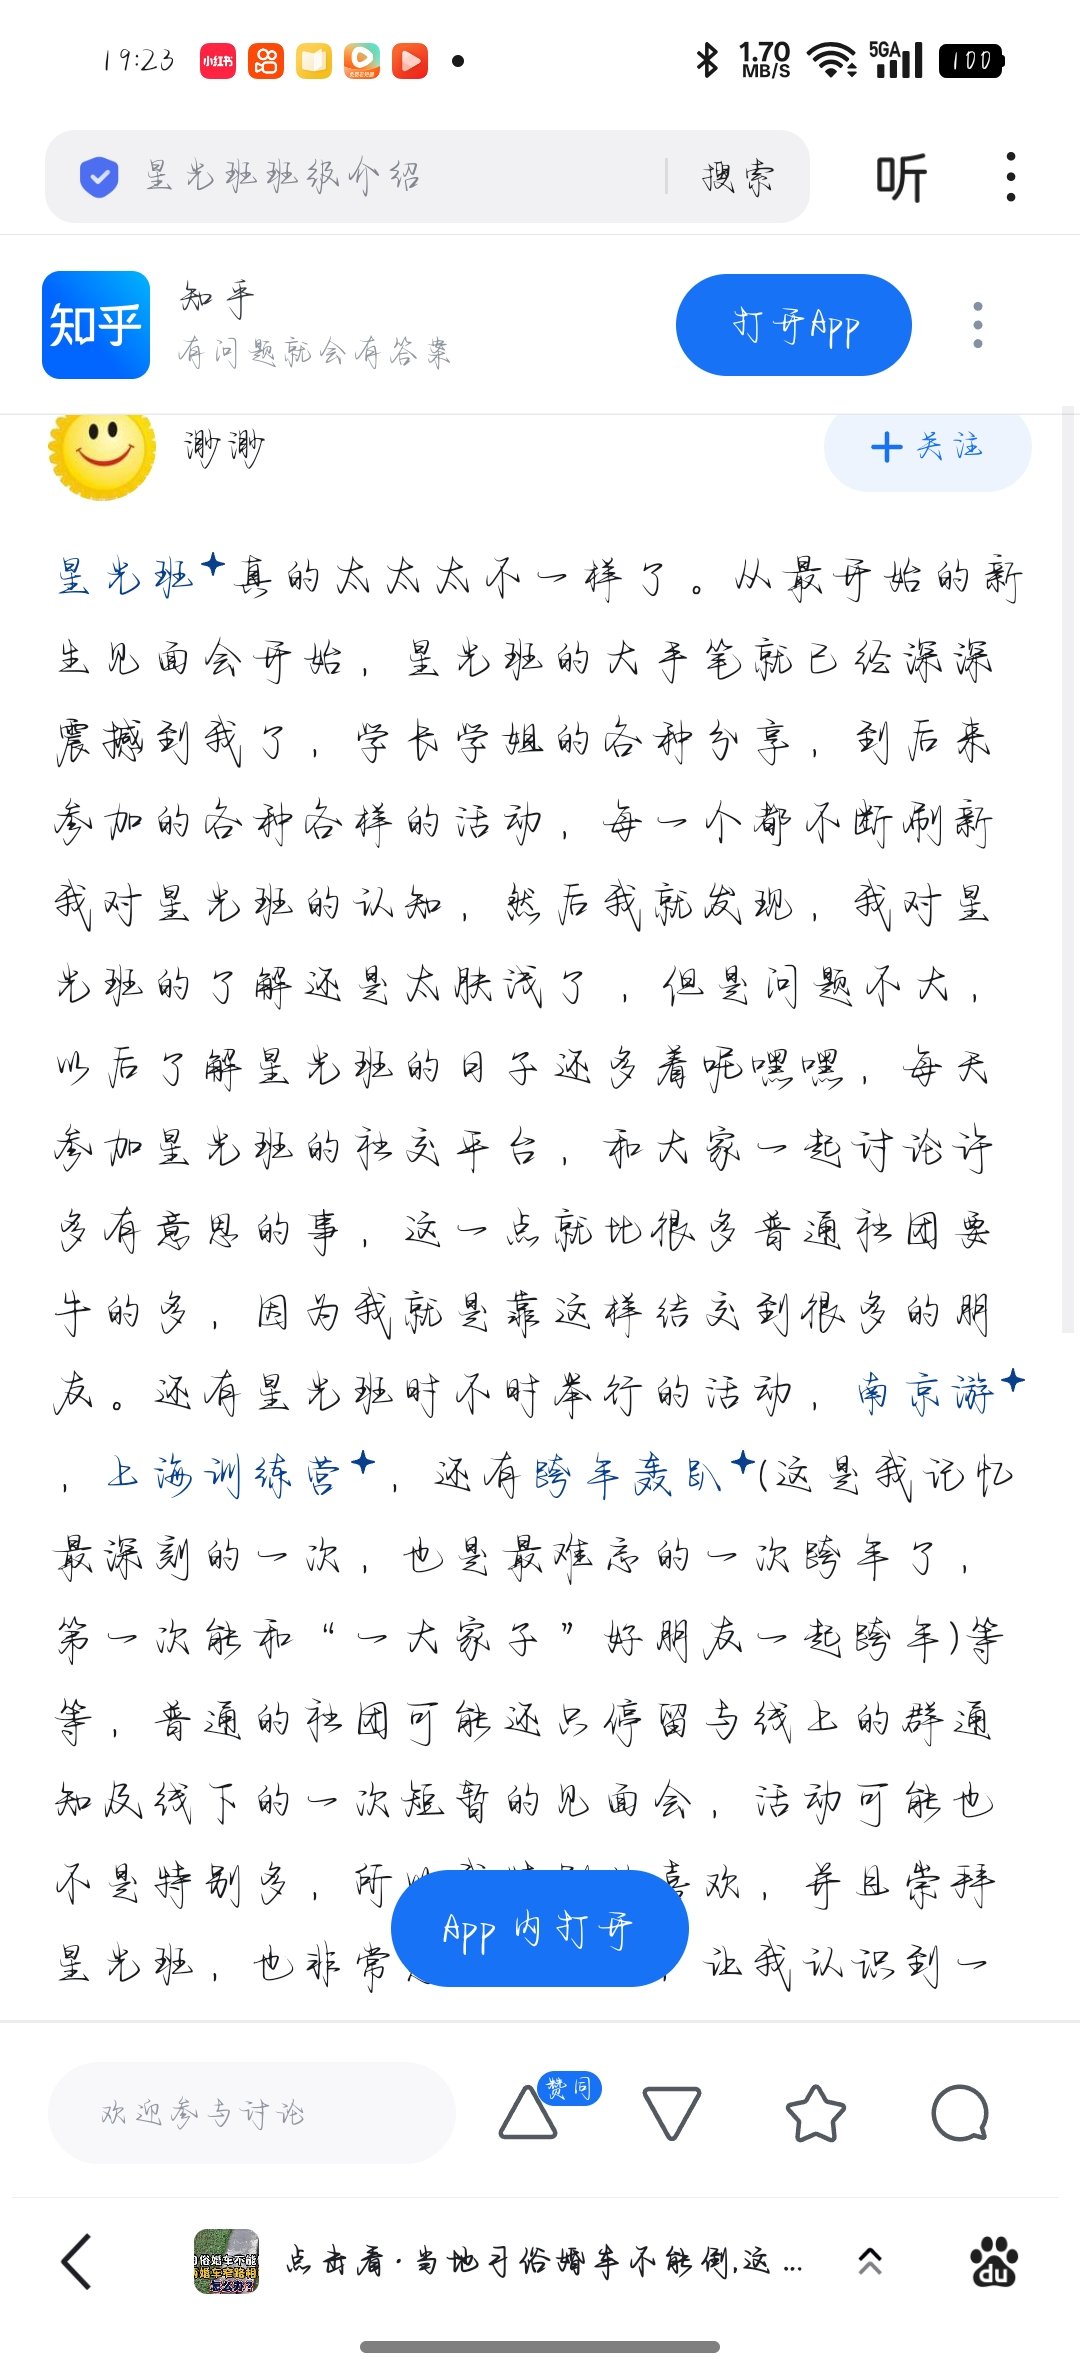 19:23
小红书
1.70
MB/S
5GA
100
星光班班级介绍
搜索
听
知乎
知乎
有问题就会有答案
打开App
渺渺
+关注
星光班真的太太太不一样了。从最开始的新
生见面会开始，星光班的大手笔就已经深深
震撼到我了，学长学姐的各种分享，到后来
参加的各种各样的活动，每一个都不断刷新
我对星光班的认知，然后我就发现，我对星
光班的了解还是太肤浅了，但是问题不大，
以后了解星光班的日子还多着呢嘿嘿，每天
参加星光班的社交平台，和大家一起讨论许
多有意思的事，这一点就比很多普通社团要
牛的多，因为我就是靠这样结交到很多的朋
友。还有星光班时不时举行的活动，南京游
，上海训练营，还有跨年轰趴(这是我记忆
最深刻的一次，也是最难忘的一次跨年了，
第一次能和“一大家子”好朋友一起跨年)等
等，普通的社团可能还只停留与线上的群通
知及线下的一次短暂的见面会，活动可能也
不是特别多，所 喜欢，并且崇拜
星光班，也非常 ，让我认识到一
App内打开
欢迎参与讨论
赞同
点击看·当地习俗婚车不能倒,这...
du